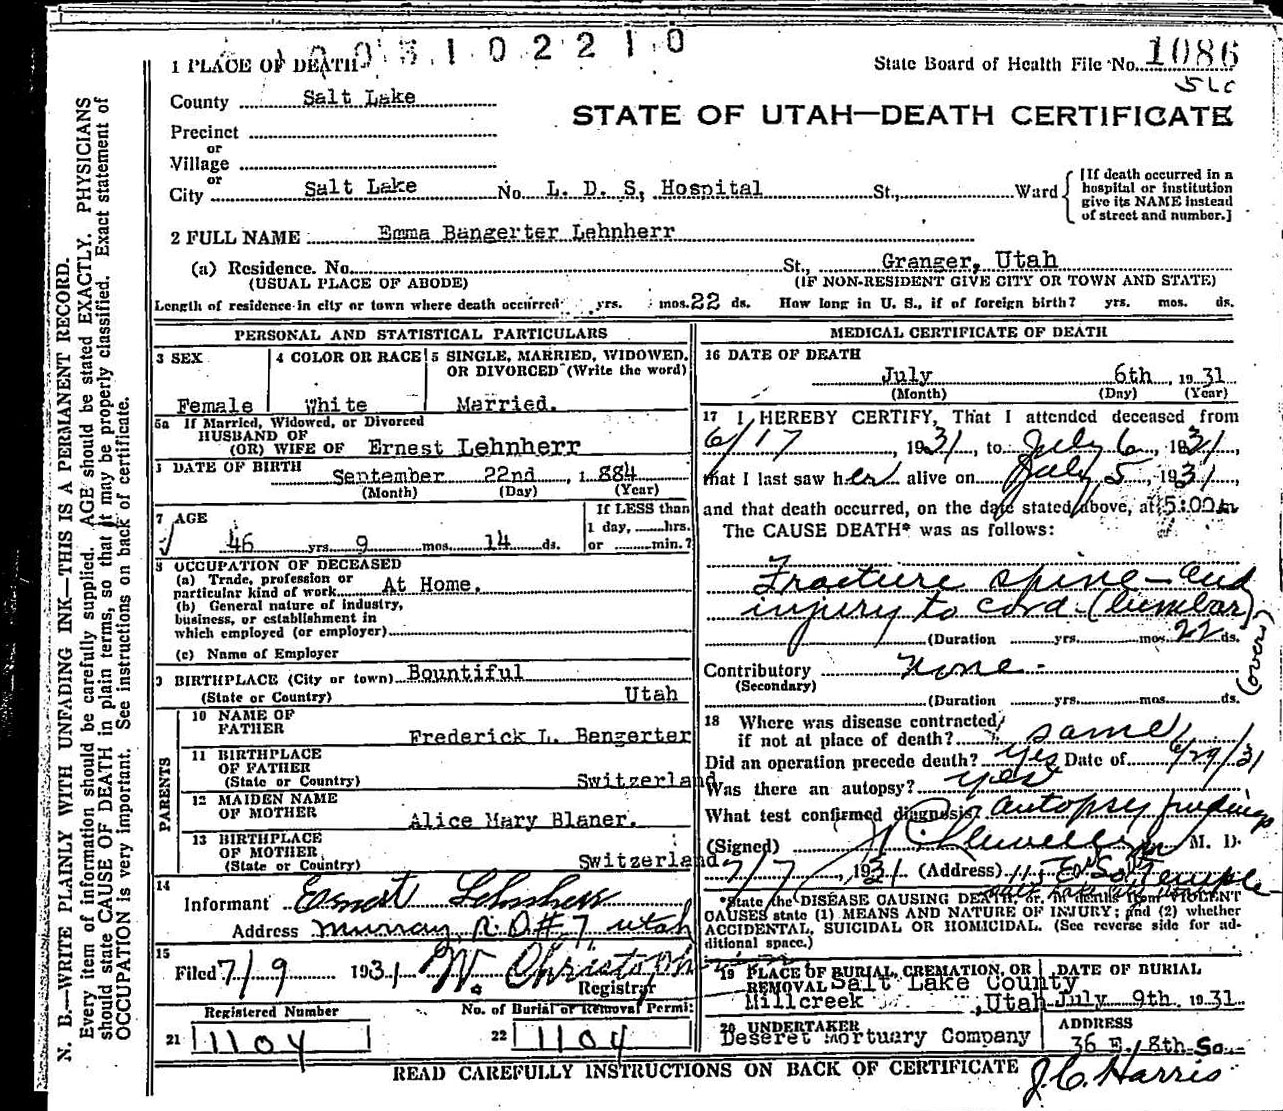 1 PLACE OF DEATH 0 0 3 1 0 2 2 1 0
State Board of Health File No. 1086
SLC
County Salt Lake
STATE OF UTAH—DEATH CERTIFICATE
Precinct
or
Village
or
City Salt Lake No. L. D. S, Hospital St., Ward
[If death occurred in a
hospital or institution
give its NAME instead
of street and number.]
2 FULL NAME Emma Bangerter Lehnherr
(a) Residence. No. St., Granger, Utah
(USUAL PLACE OF ABODE) (IF NON-RESIDENT GIVE CITY OR TOWN AND STATE)
Length of residence in city or town where death occurred yrs. mos. 22 ds. How long in U. S., if of foreign birth? yrs. mos. ds.
PERSONAL AND STATISTICAL PARTICULARS
3 SEX
Female
4 COLOR OR RACE
White
5 SINGLE, MARRIED, WIDOWED,
OR DIVORCED (Write the word)
Married.
5a If Married, Widowed, or Divorced
HUSBAND OF
(OR) WIFE OF Ernest Lehnherr
DATE OF BIRTH
September 22nd, 1884
(Month) (Day) (Year)
7 AGE
46 yrs. 9 mos. 14 ds.
If LESS than
1 day, hrs.
or min.?
8 OCCUPATION OF DECEASED
(a) Trade, profession or
particular kind of work At Home.
(b) General nature of industry,
business, or establishment in
which employed (or employer)
(c) Name of Employer
9 BIRTHPLACE (City or town) Bountiful
(State or Country) Utah
PARENTS
10 NAME OF
FATHER Frederick L. Bangerter
11 BIRTHPLACE
OF FATHER
(State or Country) Switzerland
12 MAIDEN NAME
OF MOTHER Alice Mary Blaner.
13 BIRTHPLACE
OF MOTHER
(State or Country) Switzerland
14
Informant Ernest Lehnherr
Address Murray R.D.#7, Utah
15
Filed 7/9 1931 W. Christoph
Registrar
Registered Number
21 1104
No. of Burial or Removal Permit
22 1104
MEDICAL CERTIFICATE OF DEATH
16 DATE OF DEATH
July 6th, 1931
(Month) (Day) (Year)
17 I HEREBY CERTIFY, That I attended deceased from
6/17, 1931, to July 6, 1931,
that I last saw her alive on July 5, 1931,
and that death occurred, on the date stated above, at 5:00 a m
The CAUSE DEATH* was as follows:
Fracture spine — and
injury to cord (lumbar)
(over)
(Duration yrs. mos. 22 ds.
Contributory none -
(Secondary)
(Duration yrs. mos. ds.
18 Where was disease contracted,
if not at place of death? same
Did an operation precede death? yes Date of 6/29/31
Was there an autopsy? yes
What test confirmed diagnosis? autopsy findings
(Signed) M. D.
7/7, 1931 (Address) E So Temple
*State the DISEASE CAUSING DEATH, or, in deaths from VIOLENT
CAUSES state (1) MEANS AND NATURE OF INJURY; and (2) whether
ACCIDENTAL, SUICIDAL OR HOMICIDAL. (See reverse side for ad-
ditional space.)
19 PLACE OF BURIAL, CREMATION, OR
REMOVAL Salt Lake County
Millcreek, Utah
DATE OF BURIAL
July 9th, 1931
20 UNDERTAKER
Deseret Mortuary Company
ADDRESS
36 E. 8th So.
READ CAREFULLY INSTRUCTIONS ON BACK OF CERTIFICATE
J.C. Harris
N. B.—WRITE PLAINLY WITH UNFADING INK—THIS IS A PERMANENT RECORD.
Every item of information should be carefully supplied. AGE should be stated EXACTLY. PHYSICIANS
should state CAUSE OF DEATH in plain terms, so that it may be properly classified. Exact statement of
OCCUPATION is very important. See instructions on back of certificate.